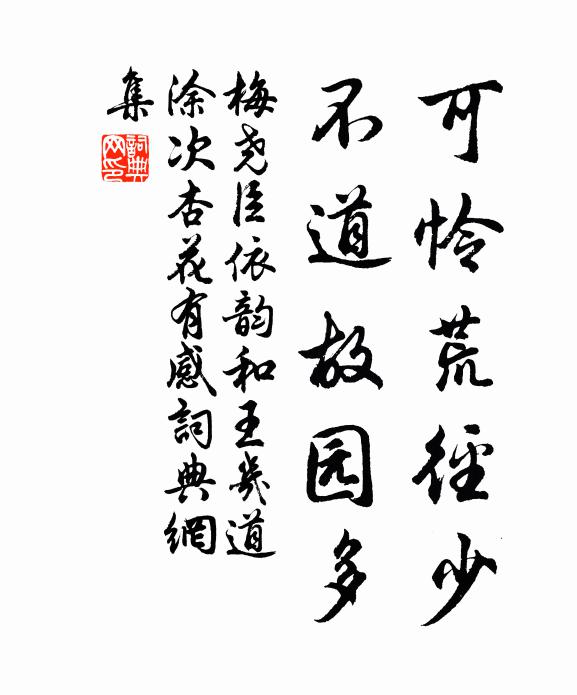 可怜荒径少
不道故园多
梅尧臣依韵和王几道
涂次杏花有感詞典網
集
詞典
网印